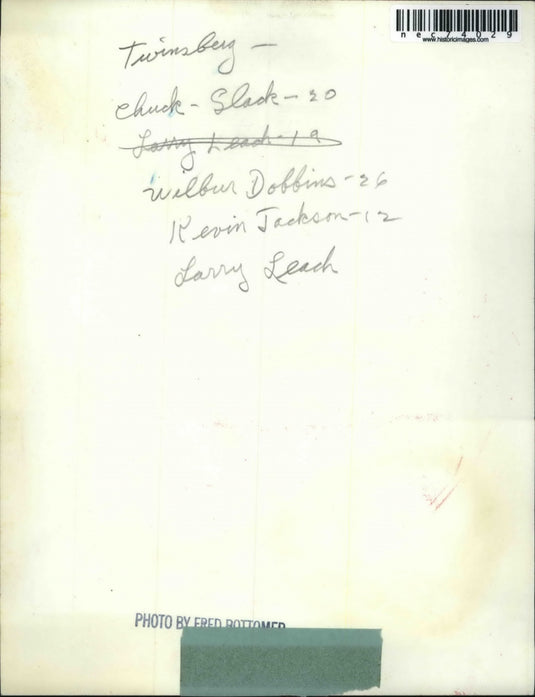 nec74029
www.historicimages.com
Twinsberg -
Chuck - Slack - 20
Larry Leach - 19
Wilbur Dobbins - 26
Kevin Jackson - 12
Larry Leach
PHOTO BY FRED BOTTOMER